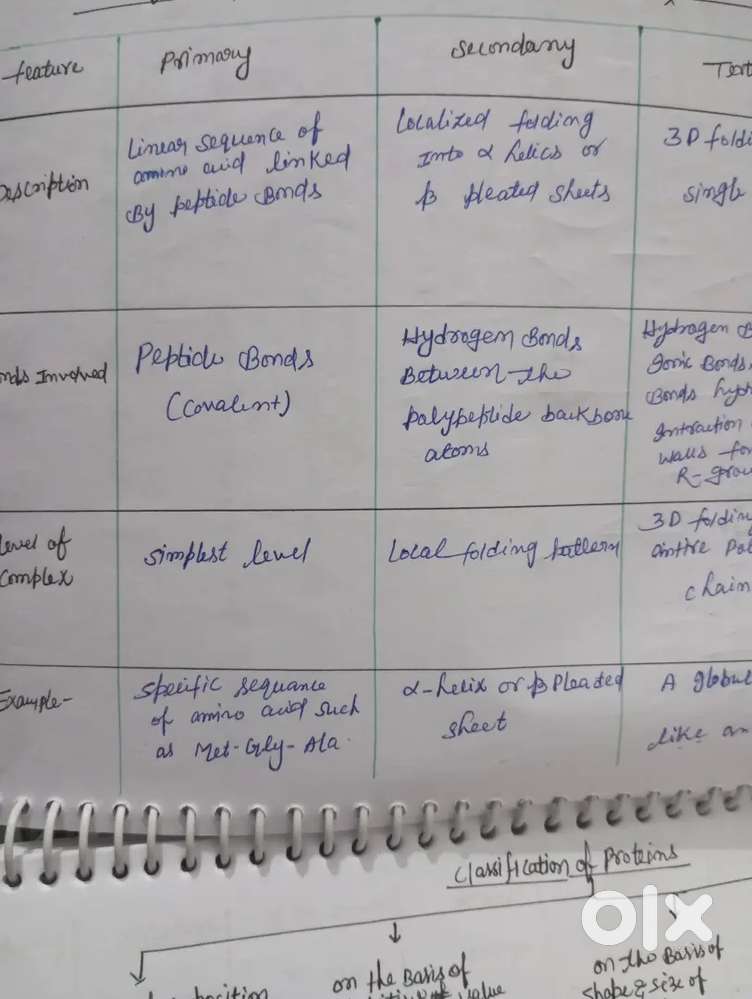 feature
Primary
secondary
Tert
Description
Linear sequence of
amino acid linked
By peptide Bonds
Localized folding
Into α helics or
β pleated sheets
3D foldi
single
nds Involved
Peptide Bonds
(covalent)
Hydrogen Bonds
Between the
polypeptide backbone
atoms
Hydrogen B
Ionic Bonds,
Bonds hydr
Intraction
walls for
R-grou
level of
Complex
simplest level
Local folding pattern
3D folding
entire Pol
chain
Example-
specific sequance
of amino acid such
as Met-Gly-Ala.
α-helix or β Pleated
sheet
A globul
like an
Classification of Proteins
on the Basis of
value
on the Basis of
shape & size of
olx